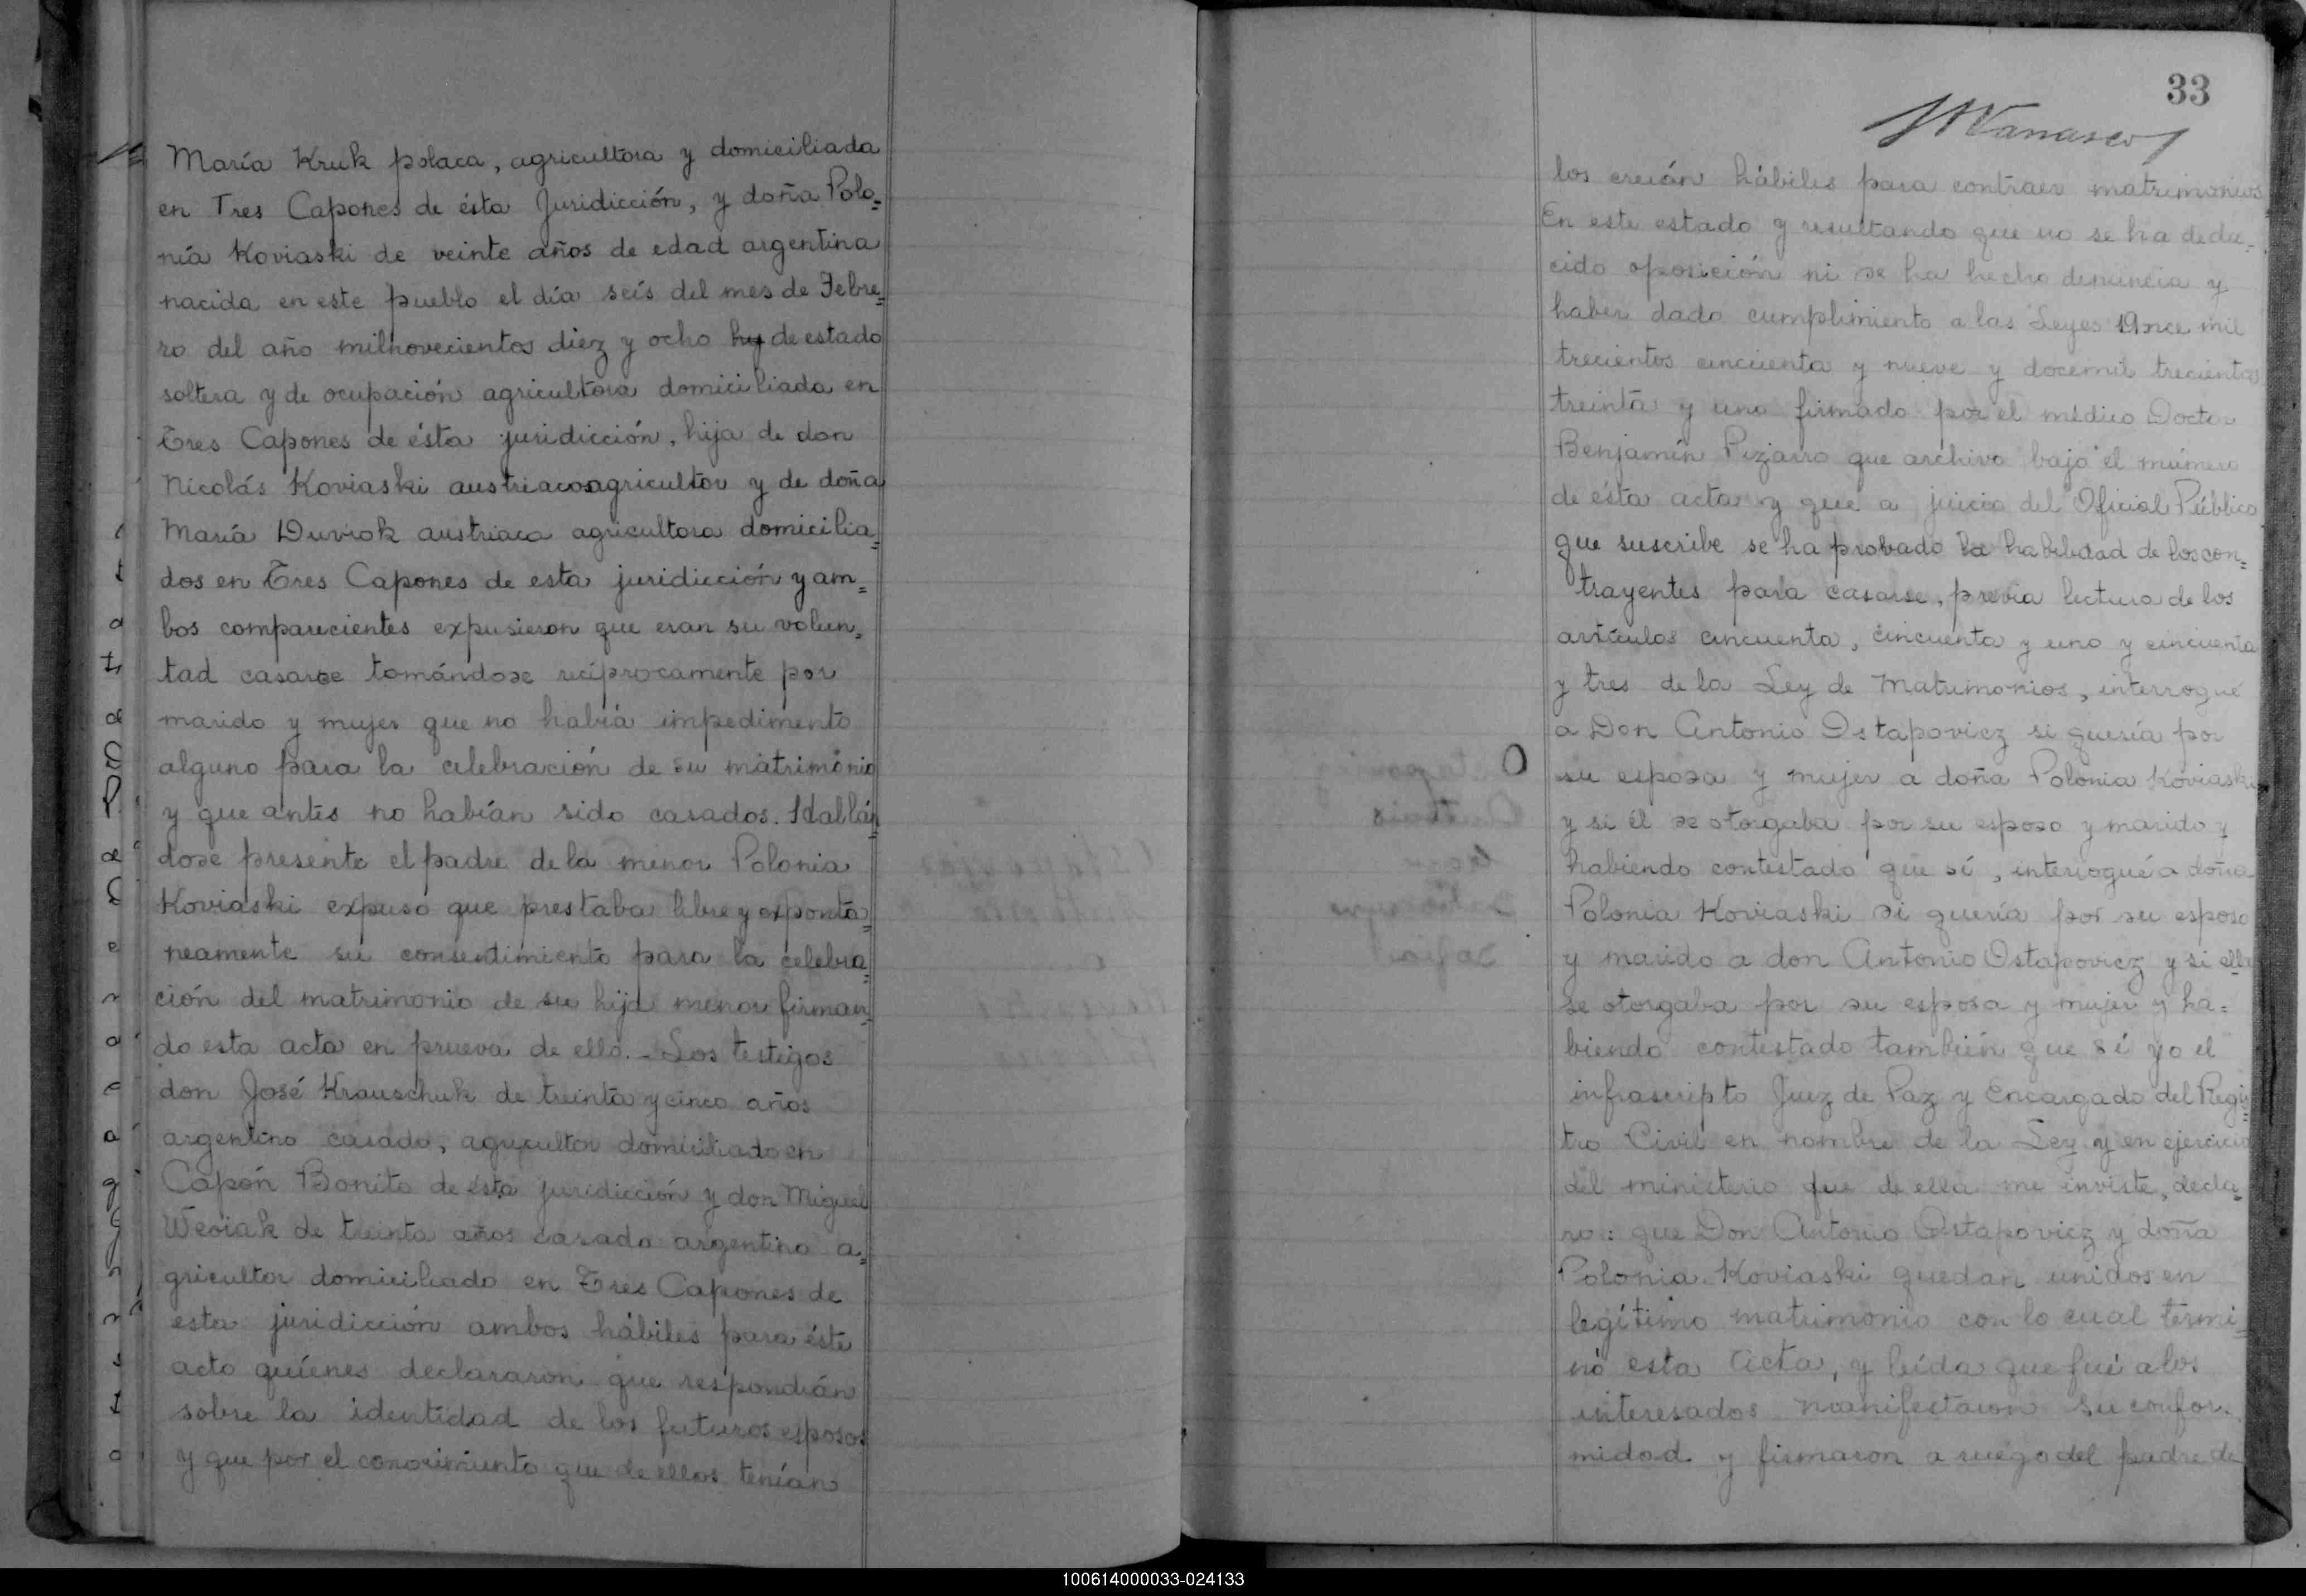 María Kruk polaca, agricultora y domiciliada
en Tres Capones de ésta Juridicción, y doña Polo=
nía Koviaski de veinte años de edad argentina
nacida en este pueblo el día seís del mes de Febre=
ro del año milnovecientos diez y ocho hy de estado
soltera y de ocupación agricultora domiciliada en
Tres Capones de ésta juridicción, hija de don
Nicolás Koviaski austriacoagricultor y de doña
María Duviok austriaca agricultora domicilia=
dos en Tres Capones de esta juridicción y am=
bos comparecientes expusieron que eran su volun=
tad casarse tomándose recíprocamente por
marido y mujer que no había impedimento
alguno para la celebración de su matrimonio
y que antes no habían sido casados. Hallán
dose presente el padre de la menor Polonia
Koviaski expuso que prestaba libre y exponta=
neamente su consentimiento para la celebra=
ción del matrimonio de su hija menor firman=
do esta acta en prueva de ello.- Los testigos
don José Krauschuk de treinta y cinco años
argentino casado, agricultor domiciliado en
Capón Bonito de ésta juridicción y don Miguel
Weviak de treinta años casado argentino a=
gricultor domiciliado en Tres Capones de
esta juridicción ambos hábiles para éste
acto quíenes declararon que respondían
sobre la identidad de los futuros esposos
y que por el conocimiento que de ellos tenían
33
los creían hábiles para contraer matrimonios
En este estado y resultando que no se ha dedu=
cido oposición ni se ha hecho denuncia y
haber dado cumplimiento a las Leyes 19nce mil
trecientos cincuenta y nueve y docemil trecientos
treinta y uno firmado por el médico Doctor
Benjamín Pizarro que archivo bajo el número
de ésta acta y que a juicio del Oficial Público
que suscribe se ha probado la habilidad de los con=
trayentes para casarse, previa lectura de los
artículos cincuenta, cincuenta y uno y cincuenta
y tres de la Ley de Matrimonios, interrogué
a Don Antonio Ostapovicz si quería por
su esposa y mujer a doña Polonia Koviaski
y si él se otorgaba por su esposo y marido y
habiendo contestado que sí, interrogué a doña
Polonia Koviaski si quería por su esposo
y marido a don Antonio Ostapovicz y si ella
se otorgaba por su esposa y mujer y ha=
biendo contestado también que sí yo el
infrascripto Juez de Paz y Encargado del Regis=
tro Civil en nombre de la Ley y en ejercicio
del ministerio que de ella me inviste, decla=
ro: que Don Antonio Ostapovicz y doña
Polonia Koviaski quedan unidos en
legítimo matrimonio con lo cual termi=
nó esta Acta, y leída que fué a los
interesados manifestaron su confor=
midad y firmaron a ruego del padre de
100614000033-024133